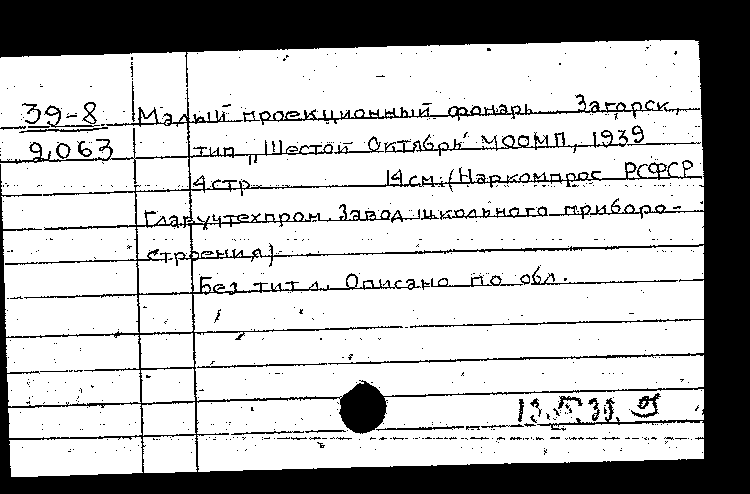 39-8 Малый проекционный фонарь Загорск,
2.063 тип „Шестой Октябрь" МООМП, 1939
4 стр 14 см. (Наркомпрос РСФСР
Главучтехпром. Завод школьного приборо-
строения)
Без тит л. Описано по обл.